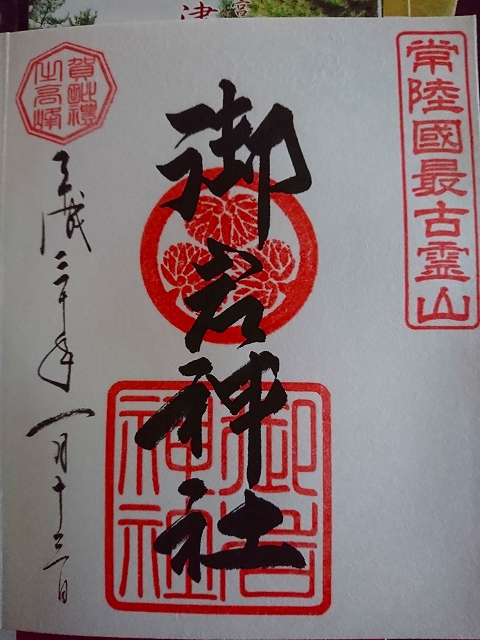 常陸國最古霊山
御岩神社
御岩神社
賀毗禮之高峰
平成三十年一月十三日
津